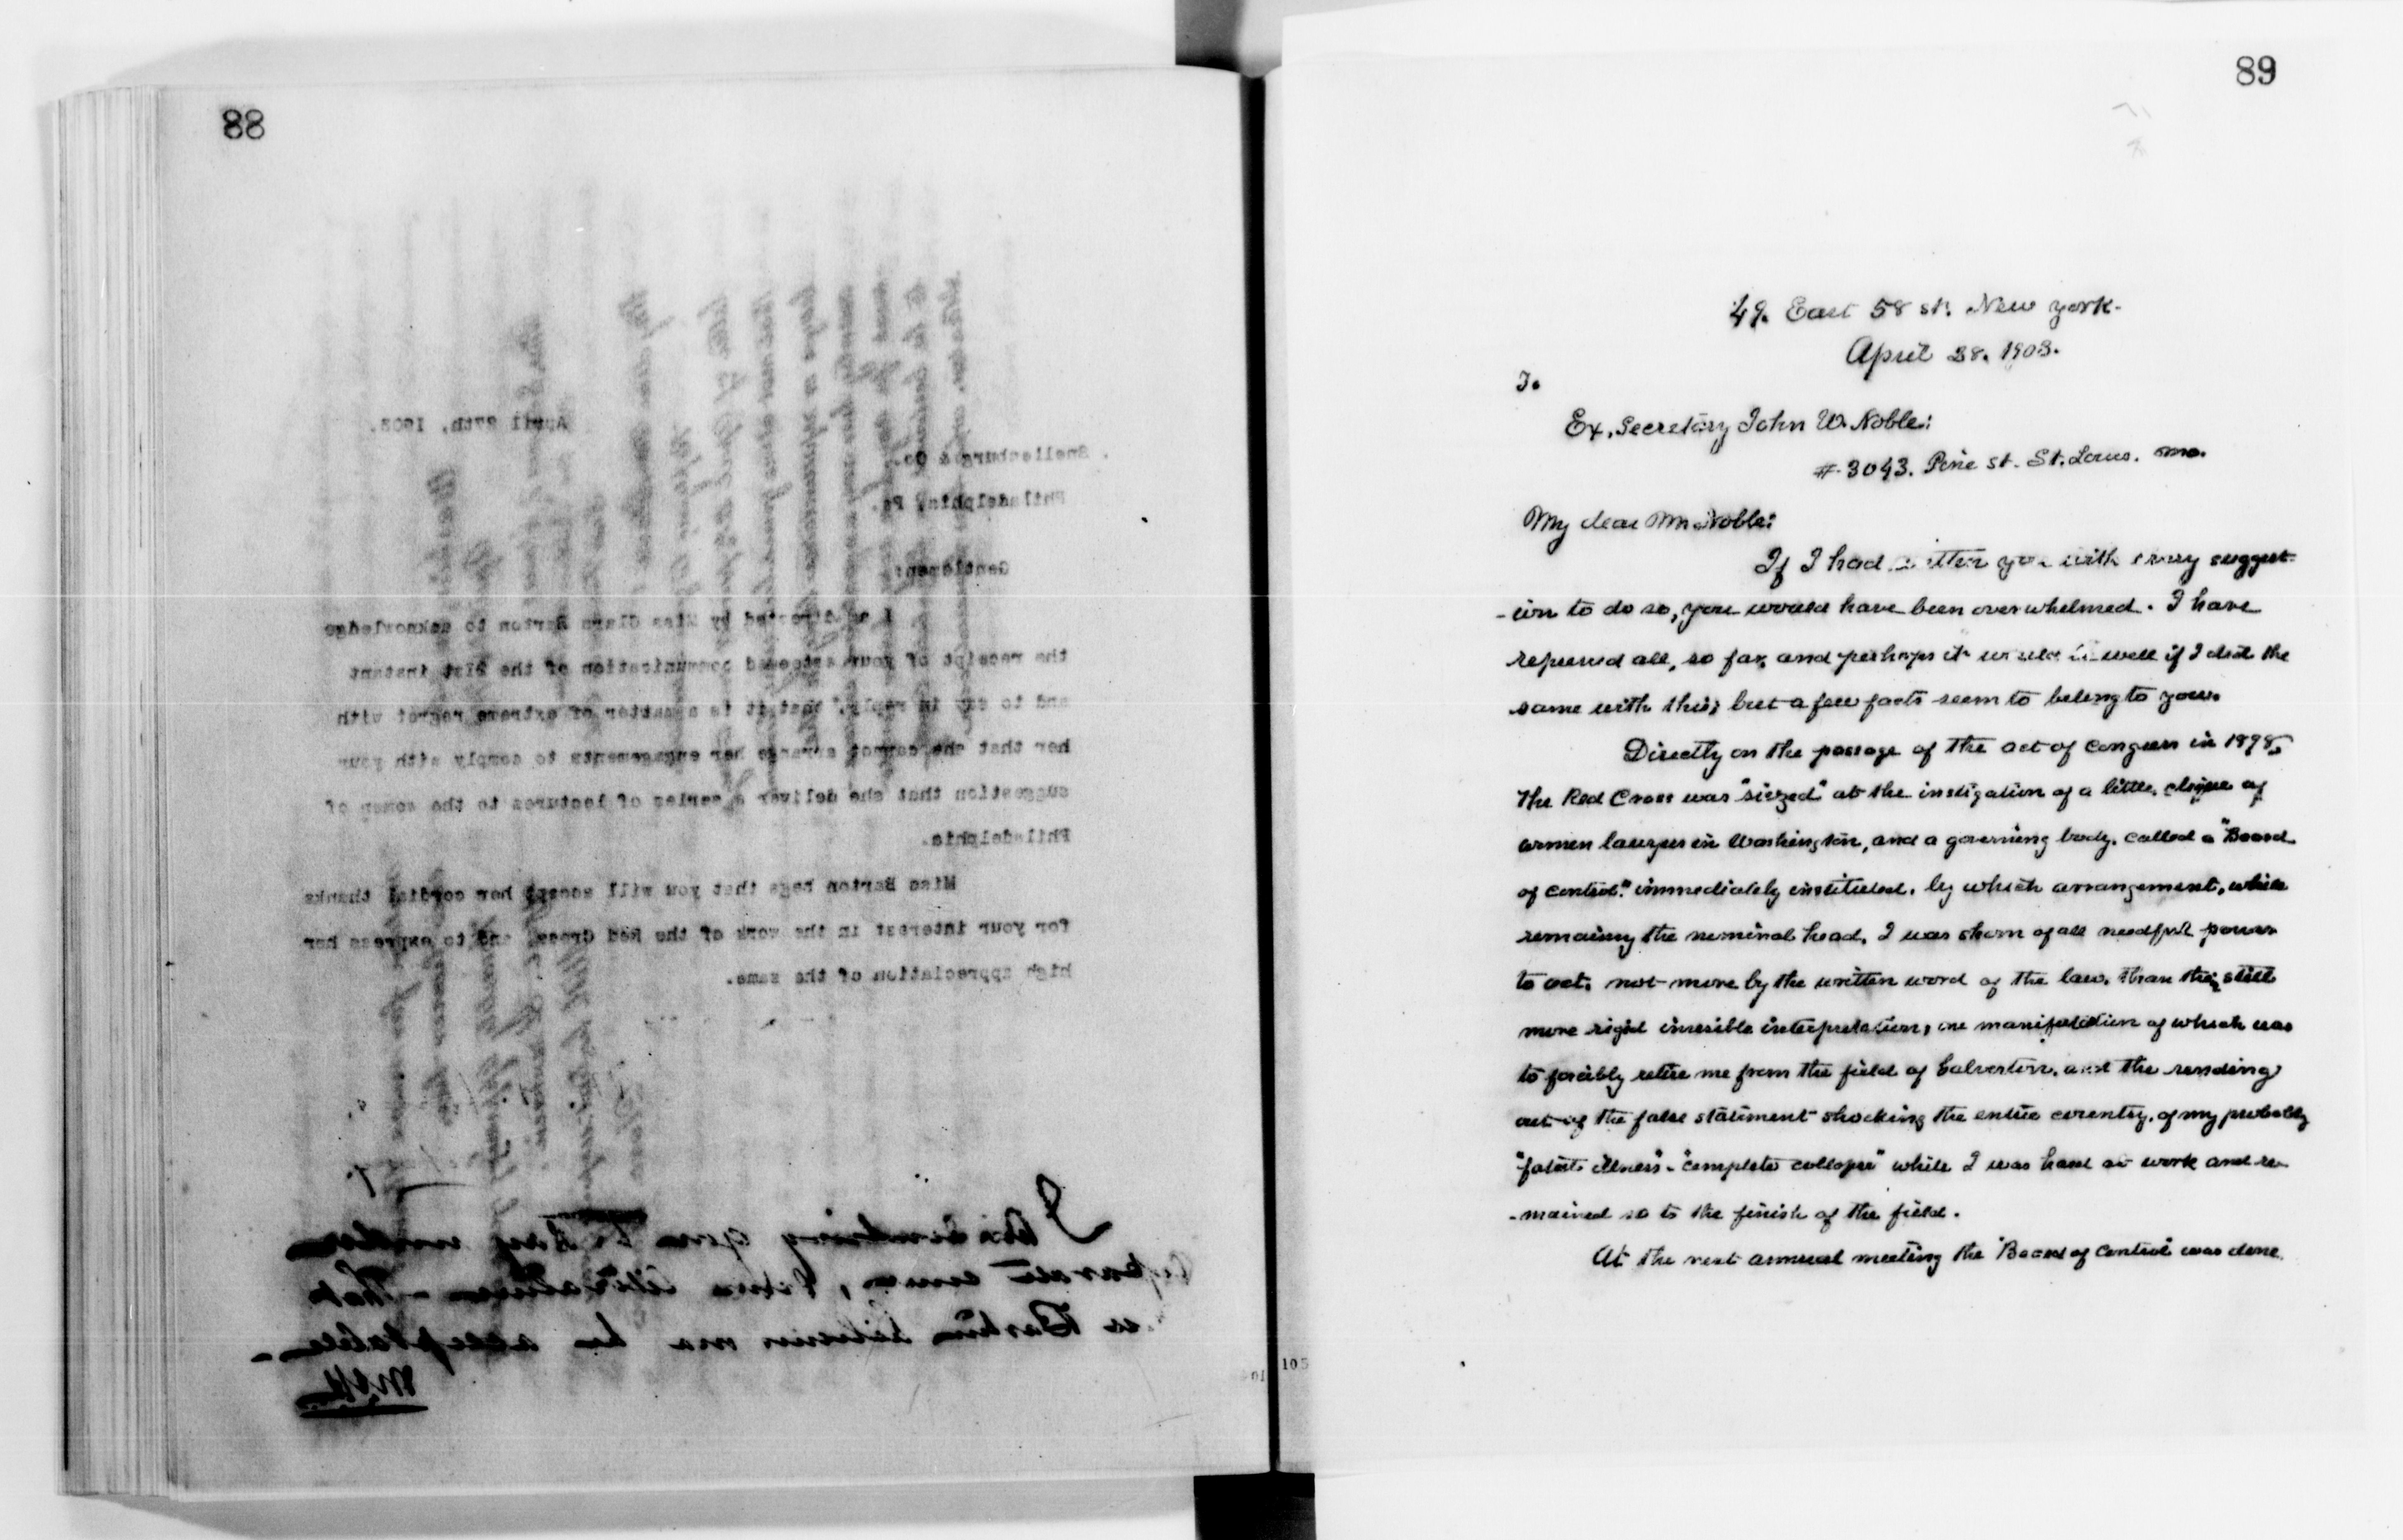 88
April 27th, 1903.
Snellenburg & Co.
Philadelphia, Pa.
Gentlemen:
I am directed by Miss Clara Barton to acknowledge
the receipt of your esteemed communication of the 21st instant
and to say in reply, that it is a matter of extreme regret with
her that she cannot arrange her engagements to comply with your
suggestion that she deliver a series of lectures to the women of
Philadelphia.
Miss Barton begs that you will accept her cordial thanks
for your interest in the work of the Red Cross, and to express her
high appreciation of the same.
I am sending you to day under
separate cover, some literature - that
Barton be acceptable -
89
49. East 58 st. New York.
April 28. 1903.
To
Ex. Secretary John W. Noble:
# 3043. Pine st. St. Louis. Mo.
My dear Mr. Noble:
If I had written you with every suggest-
-ion to do so, you would have been overwhelmed. I have
repressed all, so far, and perhaps it would be well if I did the
same with this; but a few facts seem to belong to you.
Directly on the passage of the act of Congress in 1898,
The Red Cross was "siezed" at the instigation of a little clique of
women lawyers in Washington, and a governing body, called a "Board
of Control." immediately instituted, by which arrangement, while
remaining the nominal head, I was shorn of all needful power
to act, not more by the written word of the law, than the still
more rigid invisible interpretation, one manifestation of which was
to forcibly retire me from the field of Galveston, and the sending
out of the false statement shocking the entire country, of my probably
"fatal illness" - "complete collapse" while I was hard at work and re
-mained so to the finish of the field.
At the next annual meeting the "Board of Control" was done
105